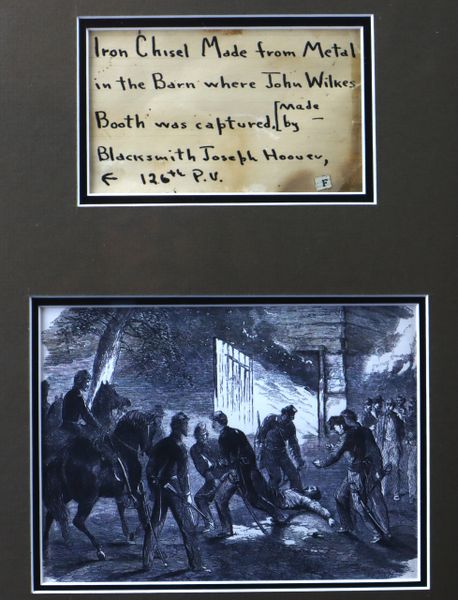 Iron Chisel Made from Metal
in the Barn where John Wilkes
Booth was captured. [Made
by –
Blacksmith Joseph Hoover,
← 126th P.V.
F